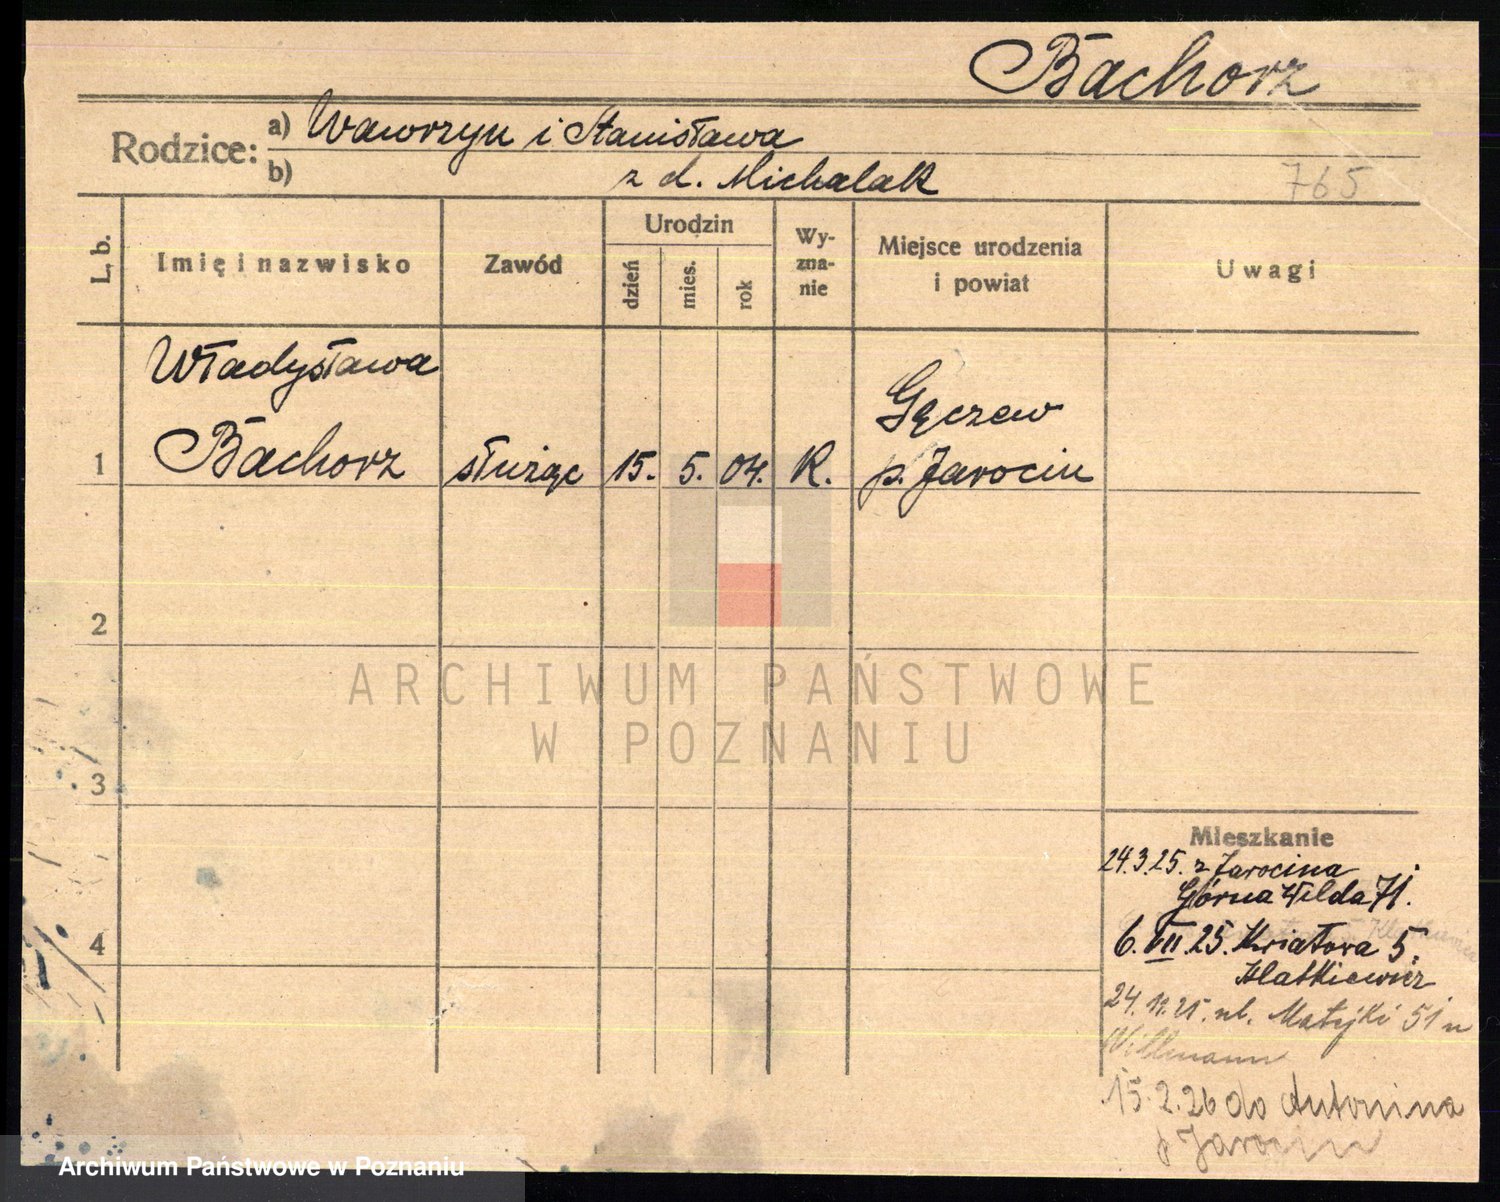 Bachorz
Rodzice: a) Wawrzyn i Stanisława
b) z d. Michalak
765
L. b. Imię i nazwisko Zawód Urodzin dzień mies. rok Wyznanie Miejsce urodzenia i powiat Uwagi
Władysława
Gęczew
1 Bachorz służąc 15. 5. 04. K. p. Jarocin
2
ARCHIWUM PAŃSTWOWE
W POZNANIU
3
Mieszkanie
24.3.25. z Jarocina
Górna Wilda 71.
4
6.VII.25. Kwiatowa 5.
24.11.25. ul. Matejki 51 u
Willmann
15.2.26 do Antonina
p Jarocin
Archiwum Państwowe w Poznaniu